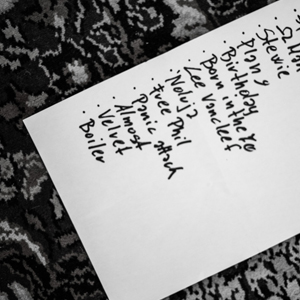 Stewie
Plang
Birthday
Born in the 76
Lee Vancleef
Noluja
Free Phil
Panic attack
Almost
Velvet
Boiler